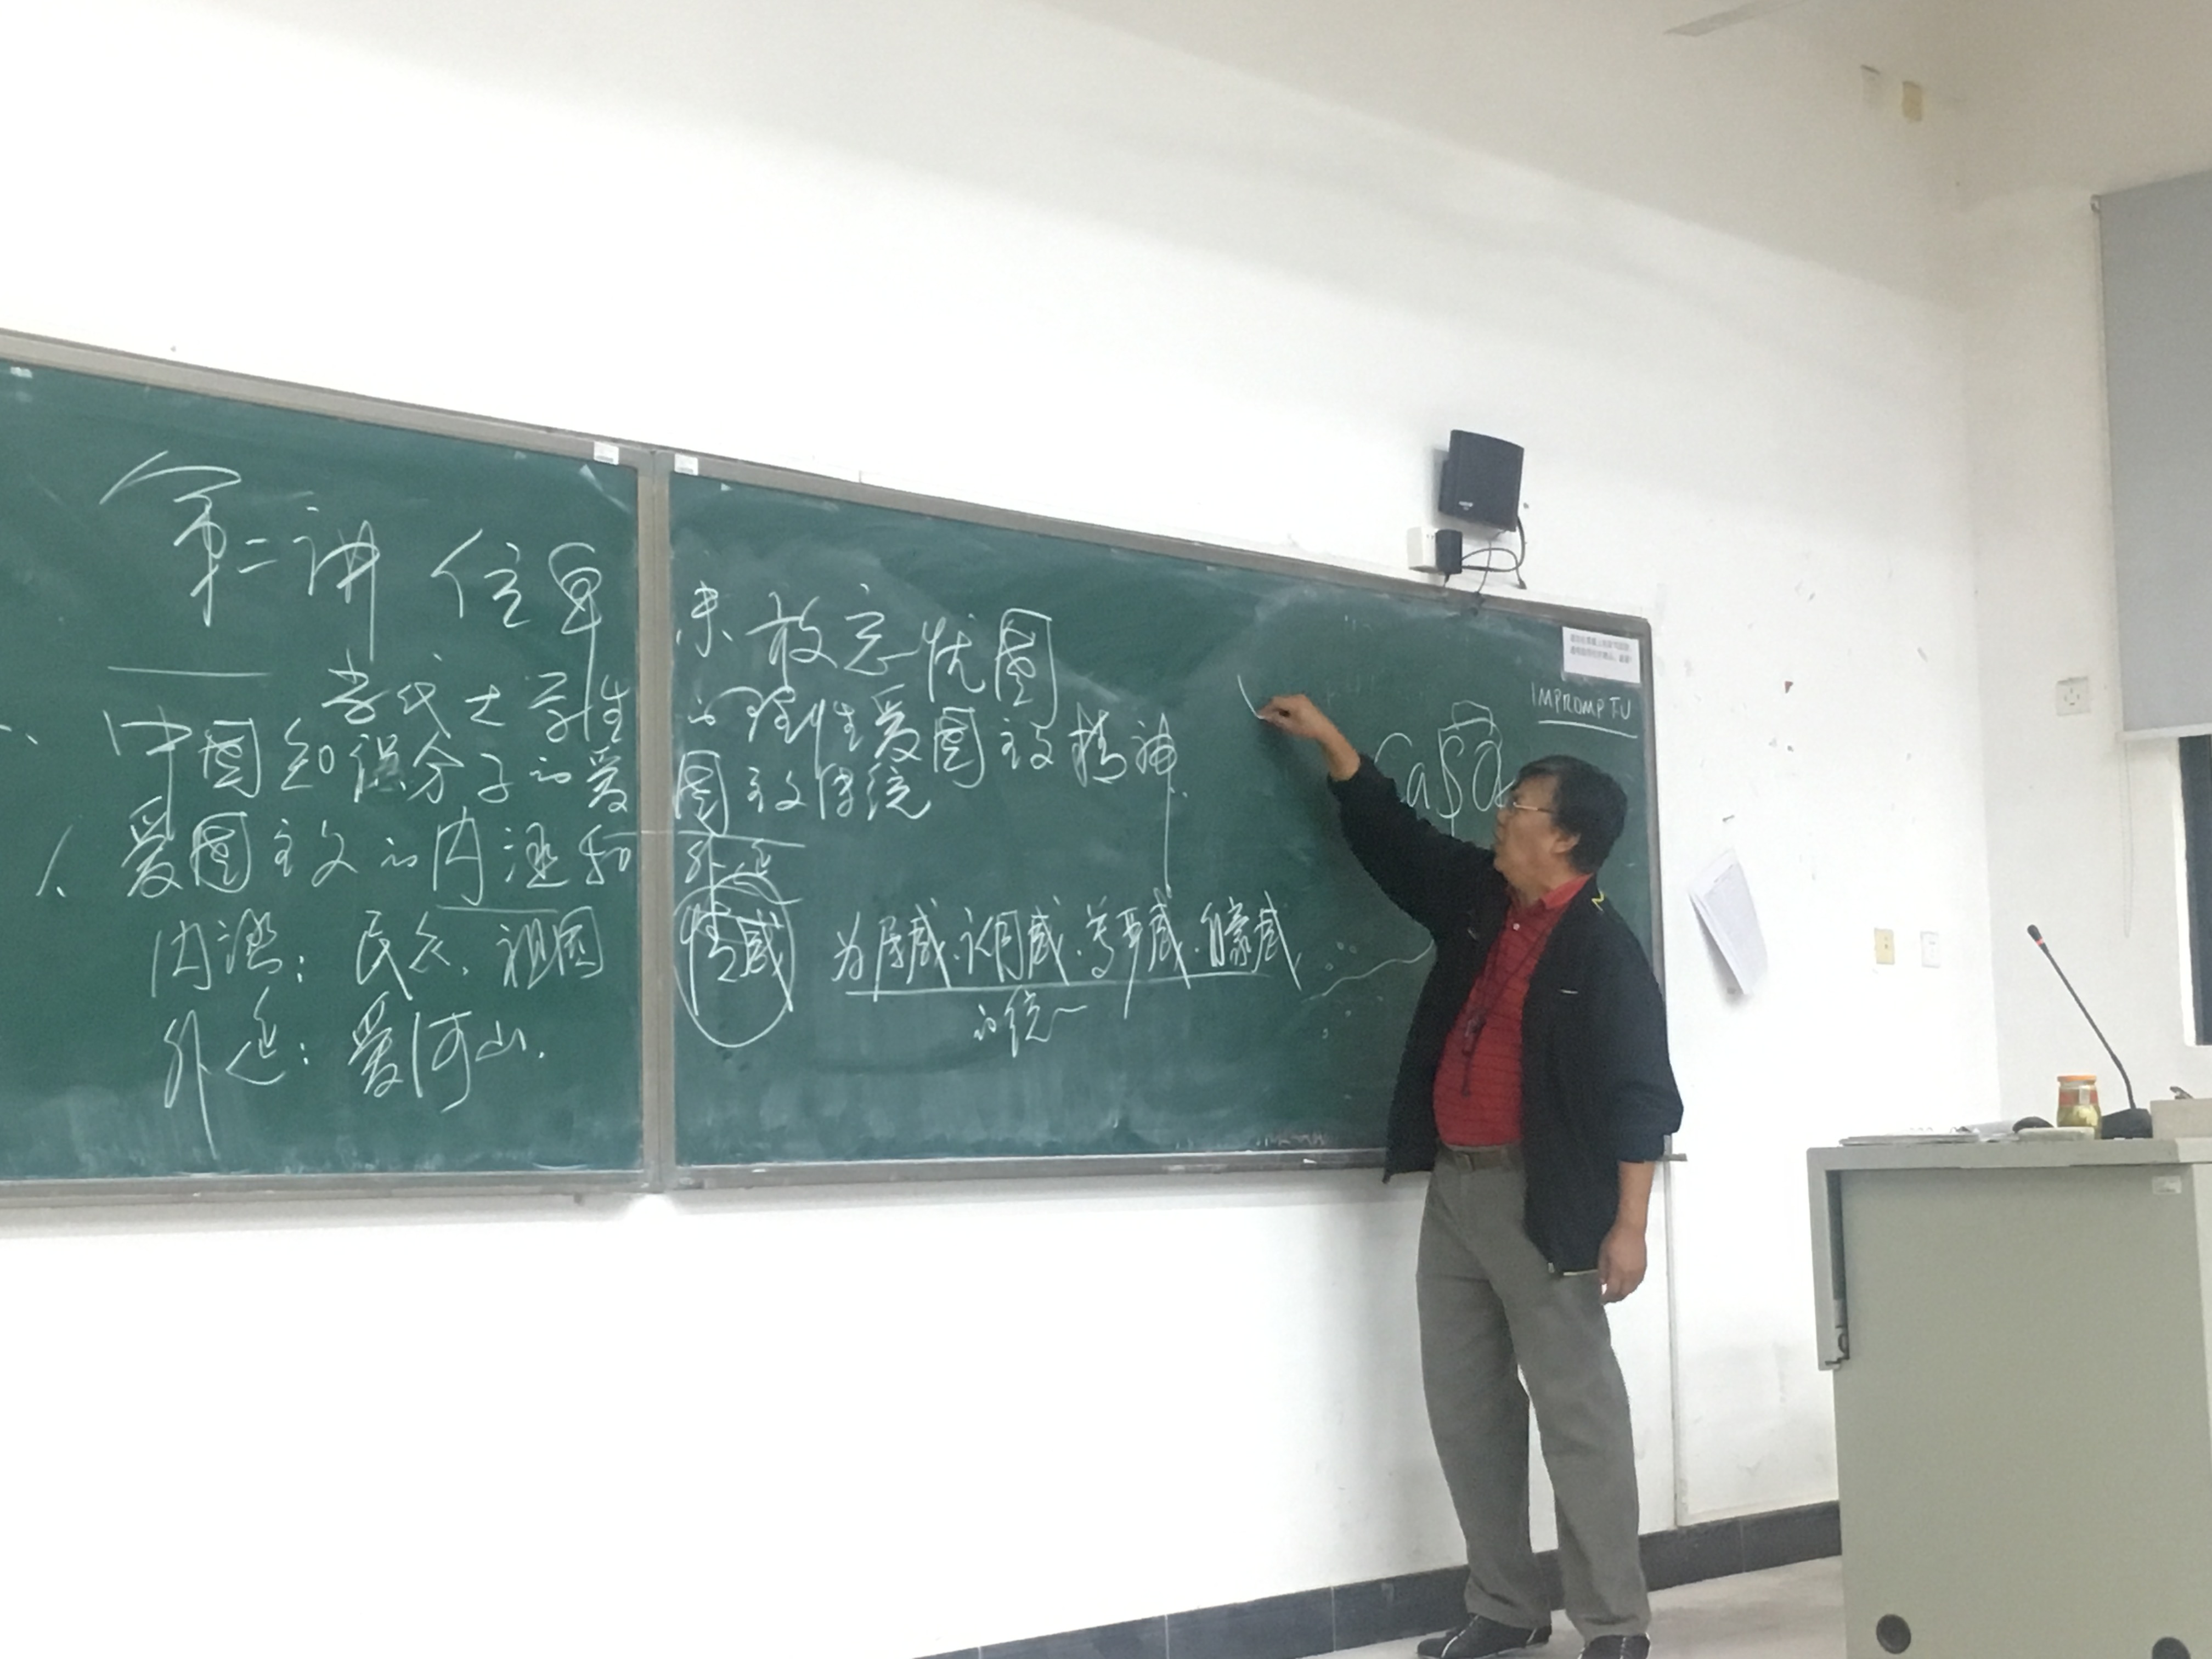 第二讲 位卑未敢忘忧国
——当代大学生的理性爱国主义精神
一、中国知识分子的爱国主义传统
1、爱国主义的内涵和外延
内涵：民众、祖国 情感 归属感·认同感·尊严感·自豪感
的统一
外延：爱河山.
IMPROMPTU